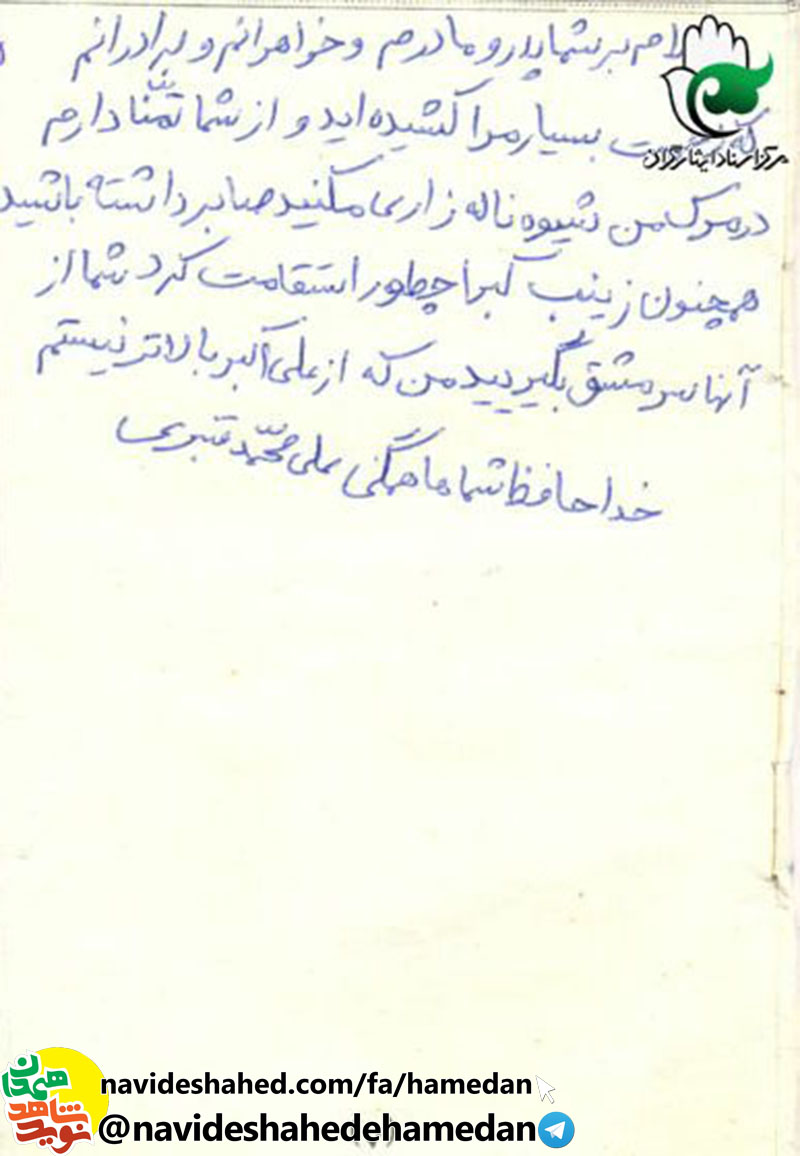 لام بر شما پدر و مادرم و خواهرانم و برادرانم
که بسیار مرا کشیده اید و از شما تمنّا دارم
در مرگ من شیوه ناله زاری مکنید صابر داشته باشید
همچنون زینب کبرا چطور استقامت کرد شما از
آنها سر مشق بگیریید من که از علی اکبر بالاتر نیستم
خدا حافظ شماها همگی علی محمّد قنبری
مرکز اسناد ایثارگران
navideshahed.com/fa/hamedan
@navideshahedehamedan
نوید شاهد همدان